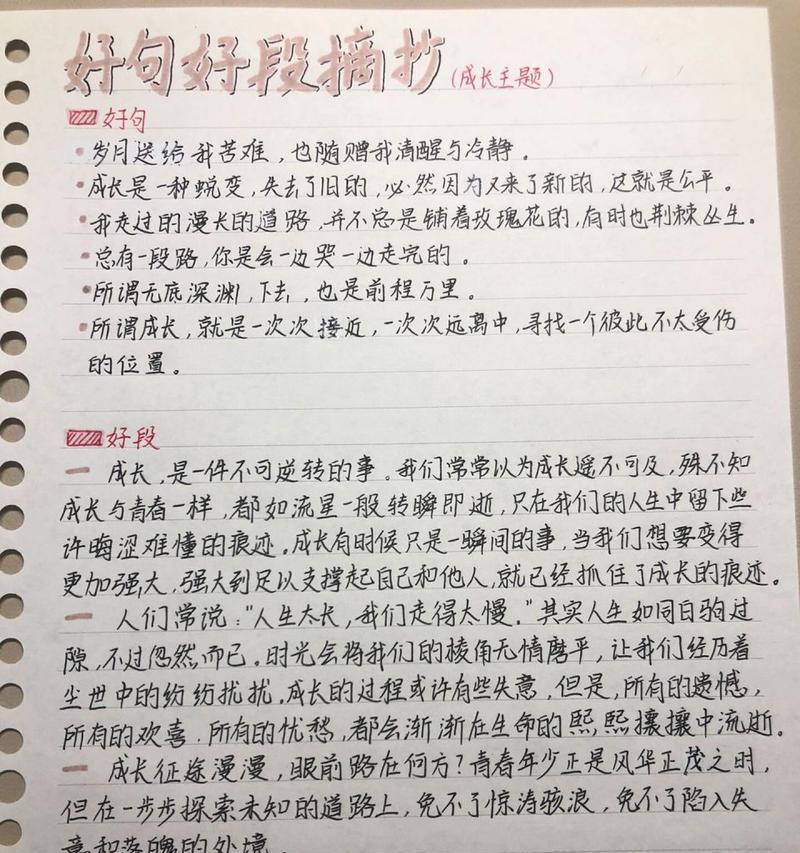 好句好段摘抄(成长主题)
好句
·岁月送给我苦难,也随赠我清醒与冷静。
·成长是一种蜕变,失去了旧的,必然因为又来了新的,这就是公平。
·我走过的漫长的道路,并不总是铺着玫瑰花的,有时也荆棘丛生。
·总有一段路,你是会一边哭一边走完的。
·所谓无底深渊,下去,也是前程万里。
·所谓成长,就是一次次接近,一次次远离中,寻找一个彼此不太受伤
的位置。
好段
一 成长,是一件不可逆转的事。我们常常以为成长遥不可及,殊不知
成长与青春一样,都如流星一般转瞬即逝,只在我们的人生中留下些
许晦涩难懂的痕迹。成长有时候只是一瞬间的事,当我们想要变得
更加强大,强大到足以支撑起自己和他人,就已经抓住了成长的痕迹。
一 人们常说:"人生太长,我们走得太慢。"其实人生如同白驹过
隙,不过忽然而已。时光会将我们的棱角无情磨平,让我们经历着
尘世中的纷纷扰扰。成长的过程或许有些失意,但是,所有的遗憾,
所有的欢喜.所有的忧愁,都会渐渐在生命的熙熙攘攘中流逝。
一 成长征途漫漫,眼前路在何方?青春年少正是风华正茂之时,
但在一步步探索未知的道路上,免不了惊涛骇浪,免不了陷入失
意和落魄的处境。